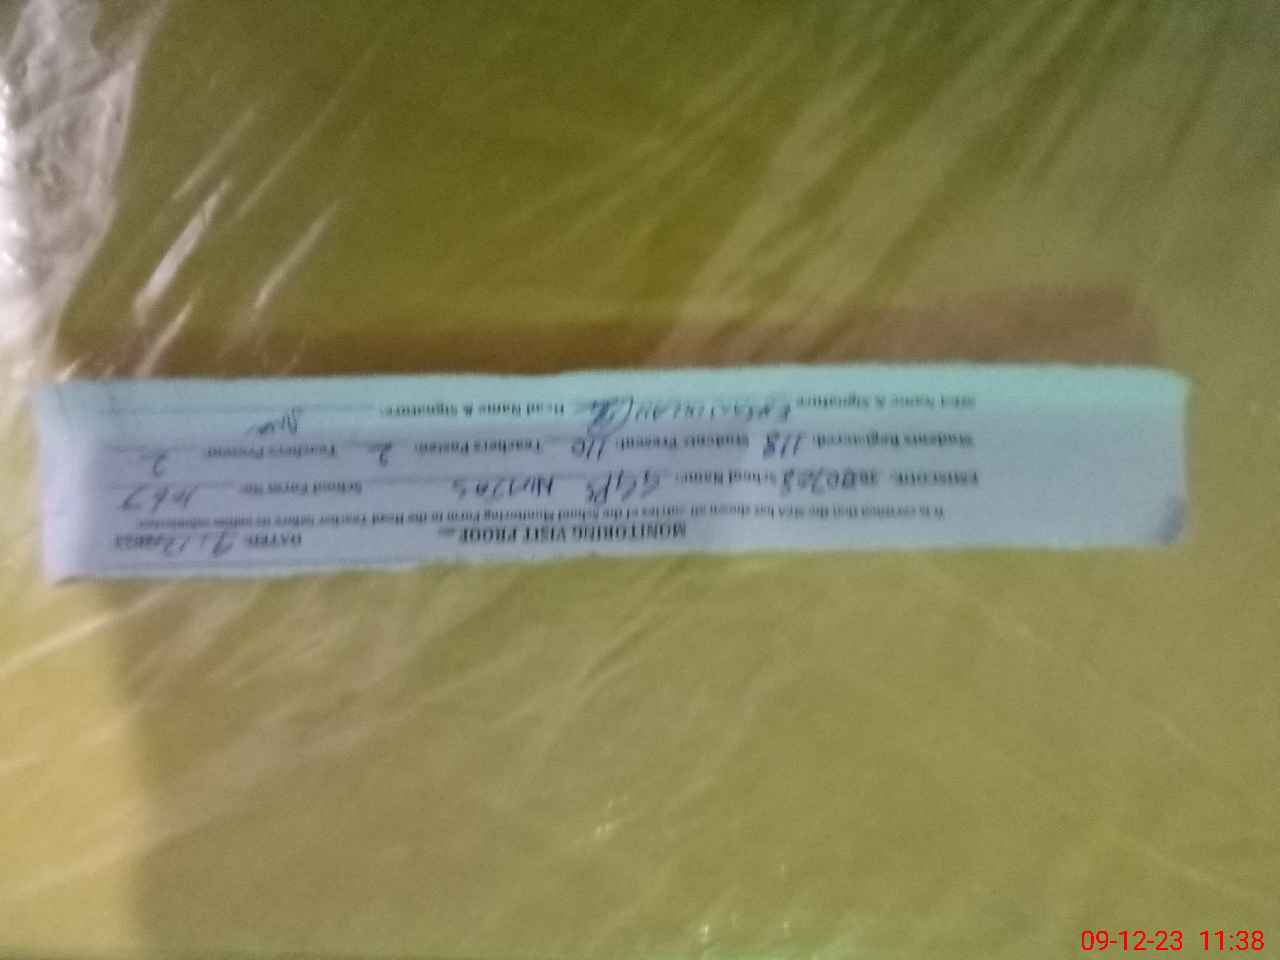 MONITORING VISIT PROOF
DATED: 9.12.2023
It is certified that the MEA has shown all entries of the School Monitoring Form to the Head Teacher before its online submission.
EMISCODE: School Name: GGPS School Form No: 1067
Students Registered: 118 Students Present: 110 Teachers Posted: 2 Teachers Present: 2
MEA Name & Signature Head Name & Signature:
09-12-23 11:38